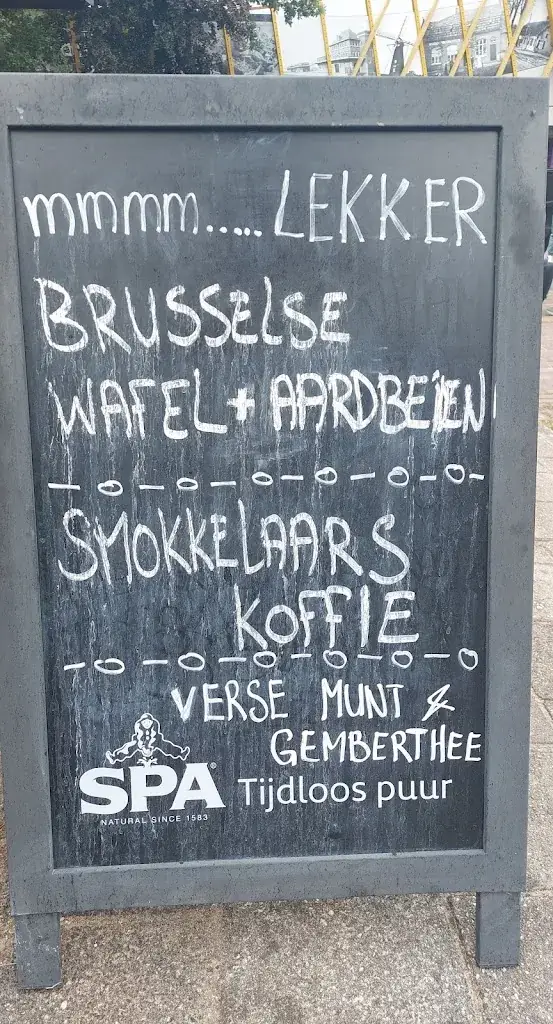 mmmm.....LEKKER
BRUSSELSE
WAFEL + AARDBEIEN
SMOKKELAARS
KOFFIE
VERSE MUNT &
GEMBERTHEE
SPA® Tijdloos puur
NATURAL SINCE 1583